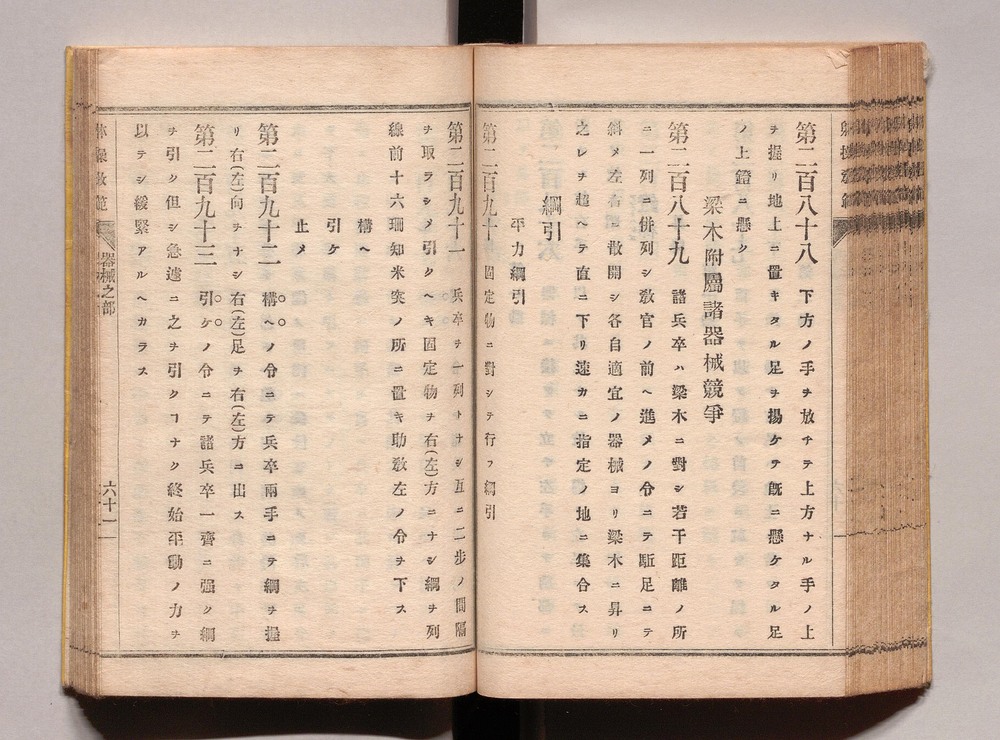 第二百八十八　下方ノ手ヲ放チテ上方ナル手ノ上
ヲ握リ地上ニ置キタル足ヲ揚ケテ既ニ懸ケタル足
ノ上鐙ニ懸ク
梁木附屬諸器械競爭
第二百八十九　諸兵卒ハ梁木ニ對シ若干距離ノ所
ニ一列ニ併列シ敎官ノ前ヘ進メノ令ニテ駈足ニテ
斜メ左右ニ散開シ各自適宜ノ器械ヨリ梁木ニ昇リ
之レヲ超ヘテ直ニ下リ速カニ指定ノ地ニ集合ス
綱引
平力綱引
第二百九十　固定物ニ對シテ行フ綱引
第二百九十一　兵卒ヲ一列トナシ互ニ二步ノ間隔
ヲ取ラシメ引クヘキ固定物ヲ右(左)方ニナシ綱ヲ列
線前十六珊知米突ノ所ニ置キ助敎左ノ令ヲ下ス
構ヘ
引ケ
止メ
第二百九十二　構ヘノ令ニテ兵卒兩手ニテ綱ヲ握
リ右(左)向ヲナシ右(左)足ヲ右(左)方ニ出ス
第二百九十三　引ケノ令ニテ諸兵卒一齊ニ强ク綱
ヲ引ク但シ急遽ニ之ヲ引クヿナク終始平動ノ力ヲ
以テシ緩緊アルヘカラス
器械之部
六十一